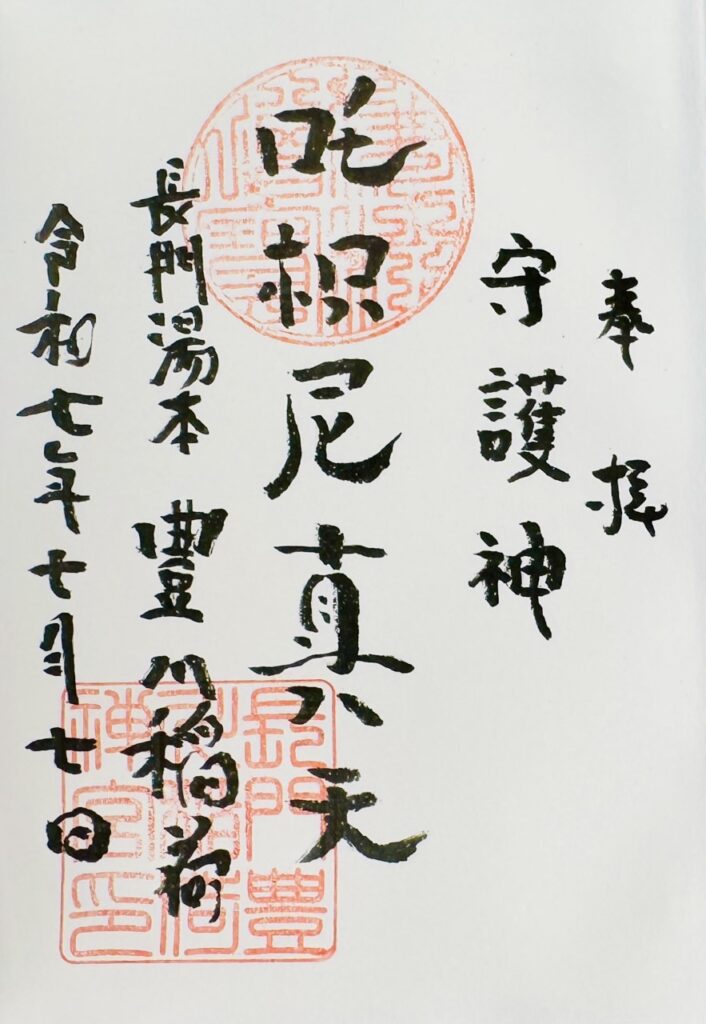 奉拝
守護神
吒枳尼真天
長門湯本 豊川稲荷
令和七年七月七日
長門豊
川稲荷
神宮印